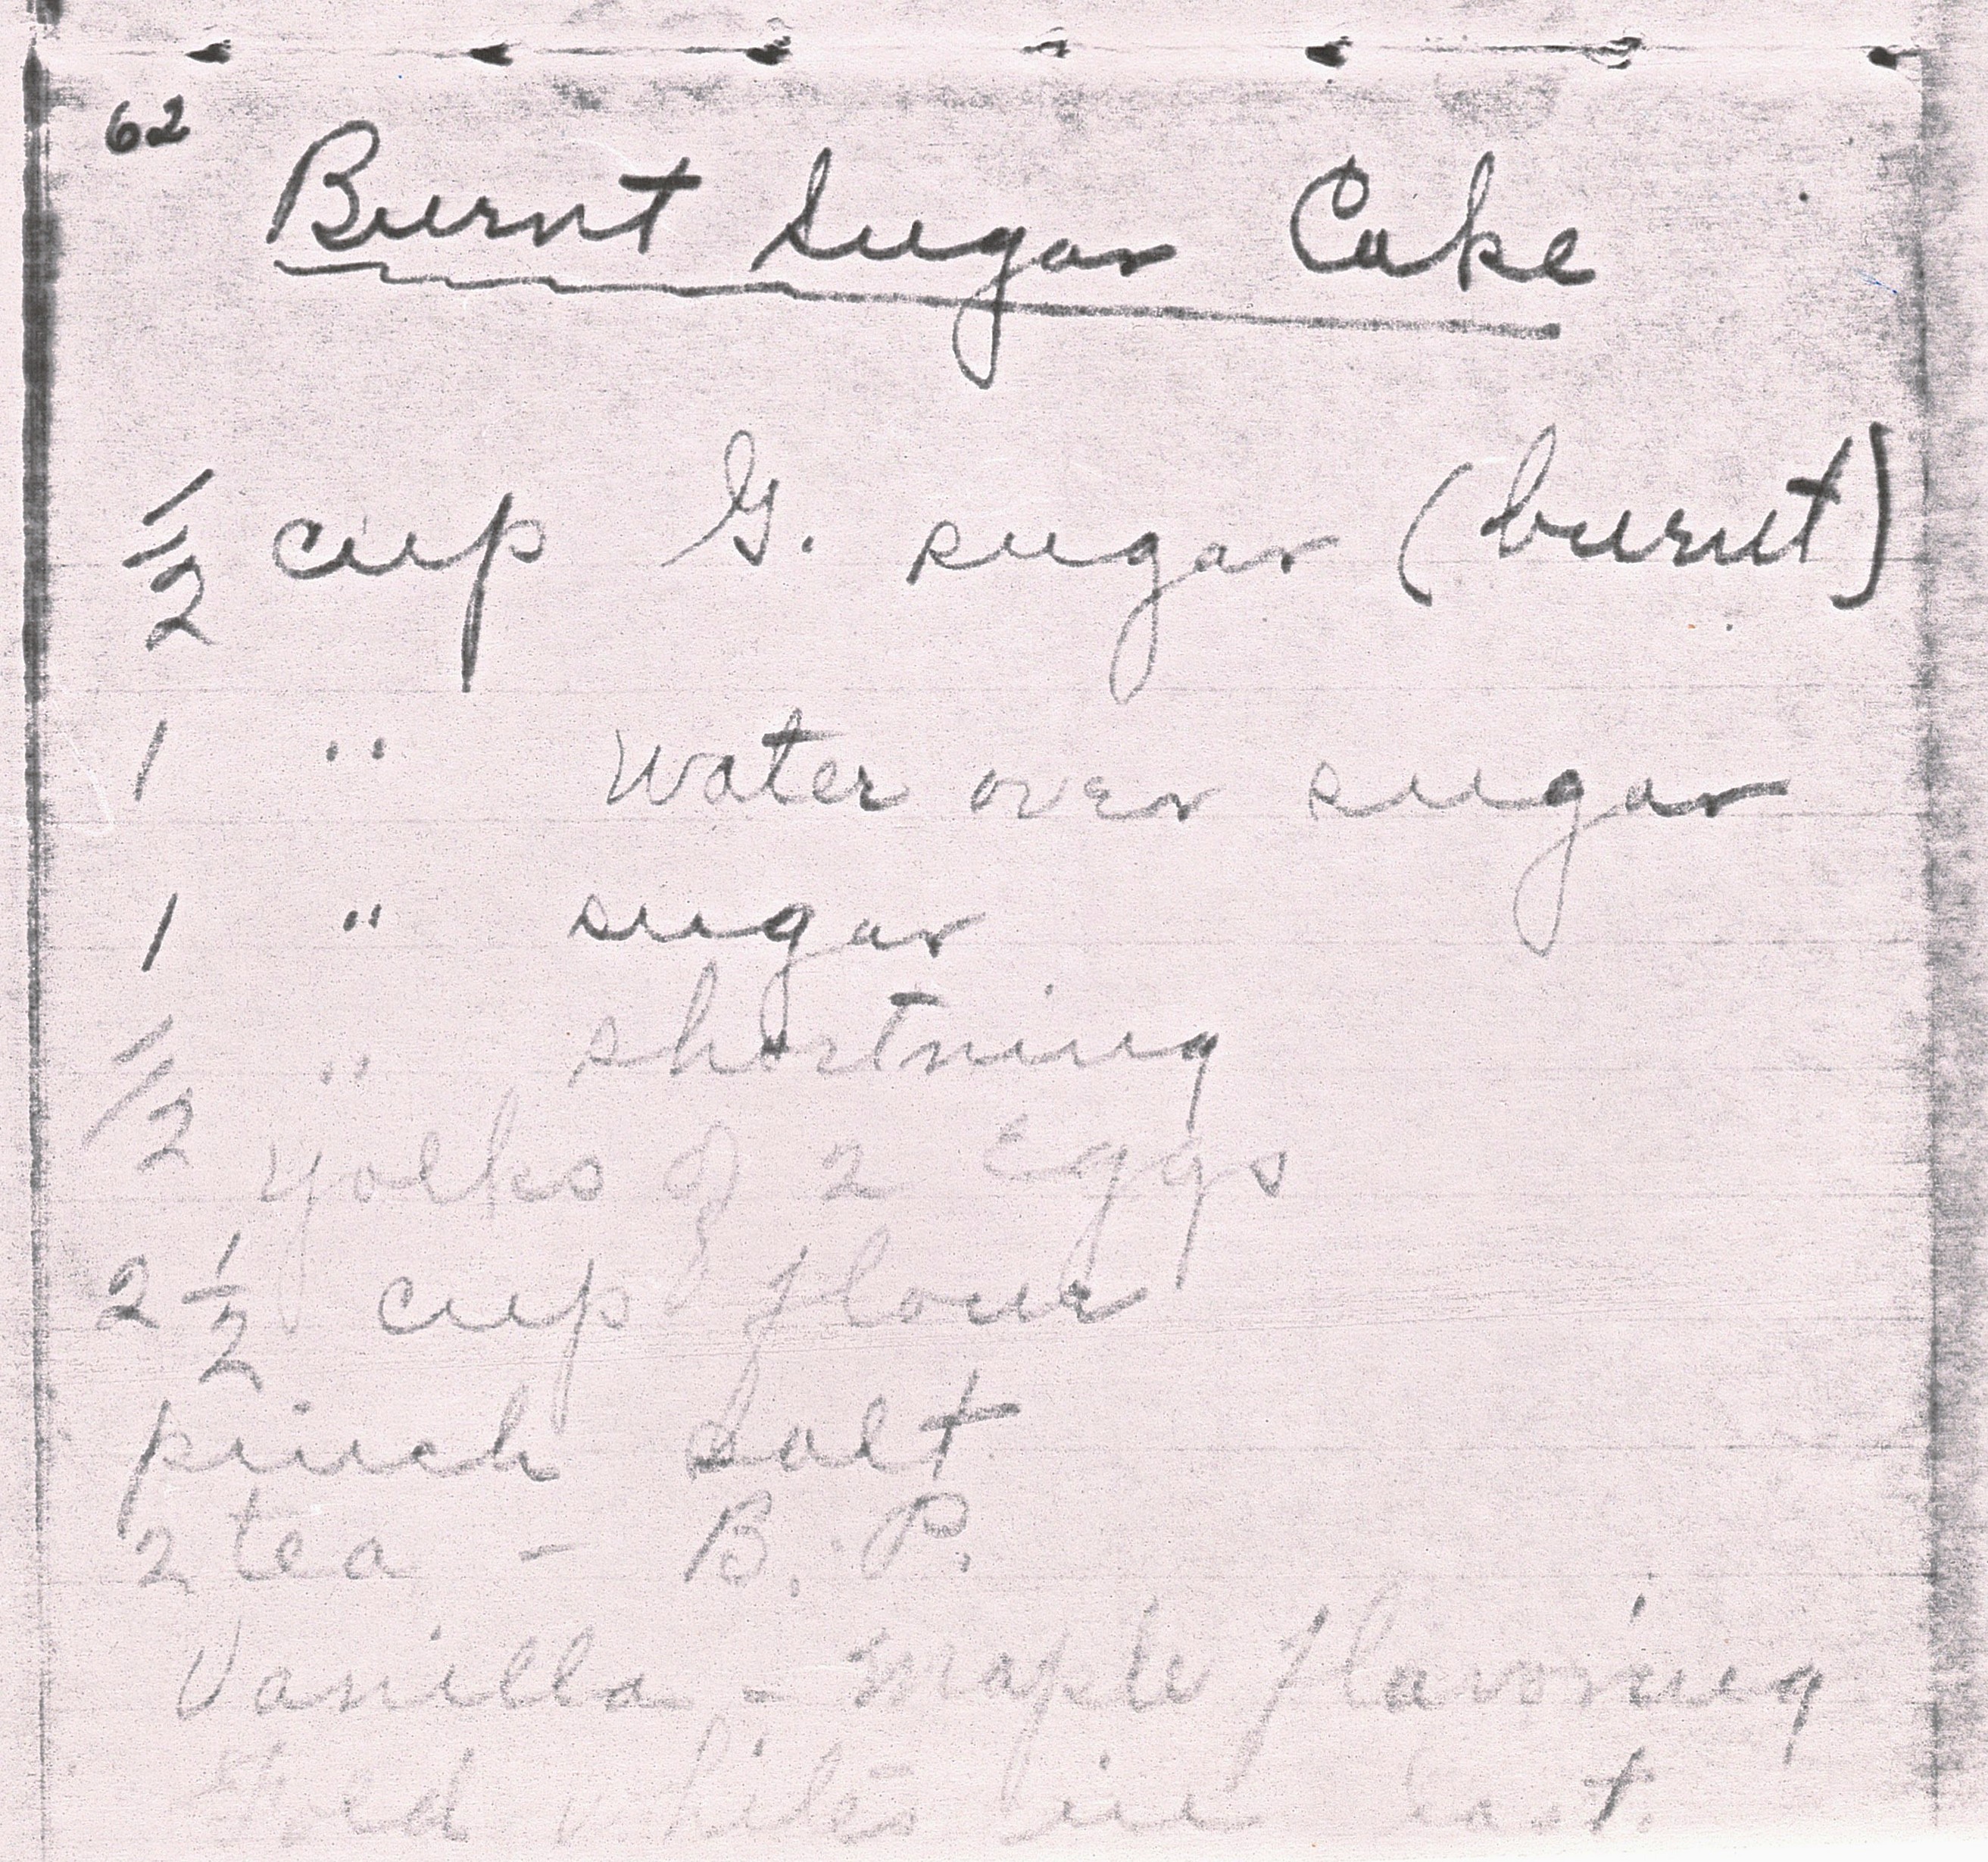 62
Burnt Sugar Cake
1/2 cup G. sugar (burnt)
1 " Water over sugar
1 " sugar
1/2 " shortning
yolks of 2 eggs
2 1/2 cup flour
pinch salt
2 tea - B. P.
Vanilla - maple flavoring
Fold whites in last.